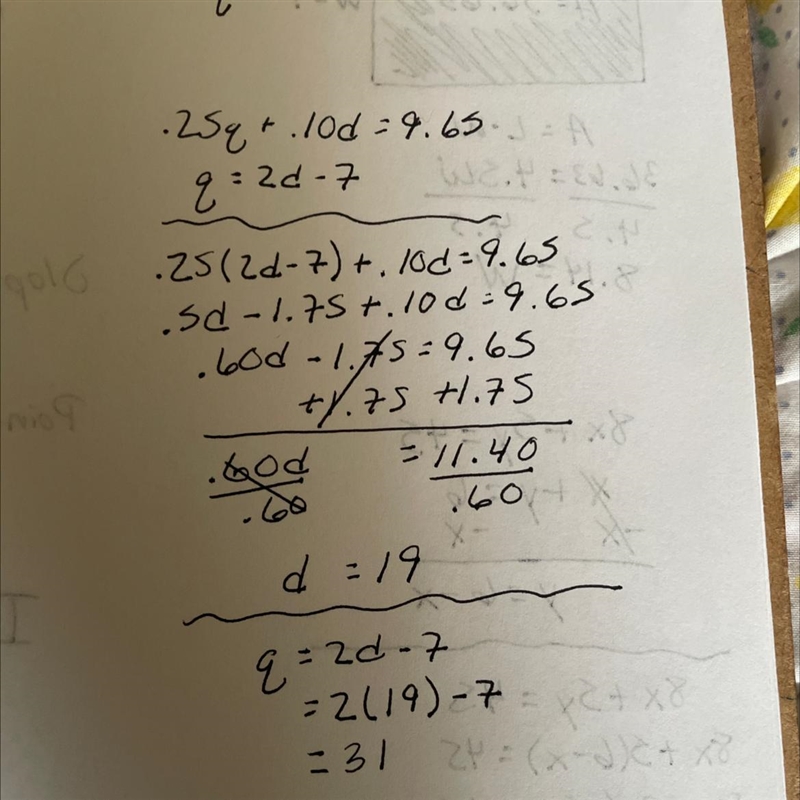 .25q + .10d = 9.65
q = 2d - 7
.25(2d-7) + .10d = 9.65
.5d - 1.75 + .10d = 9.65
.60d - 1.75 = 9.65
+1.75 +1.75
.60d = 11.40
.60 .60
d = 19
q = 2d - 7
= 2(19) - 7
= 31